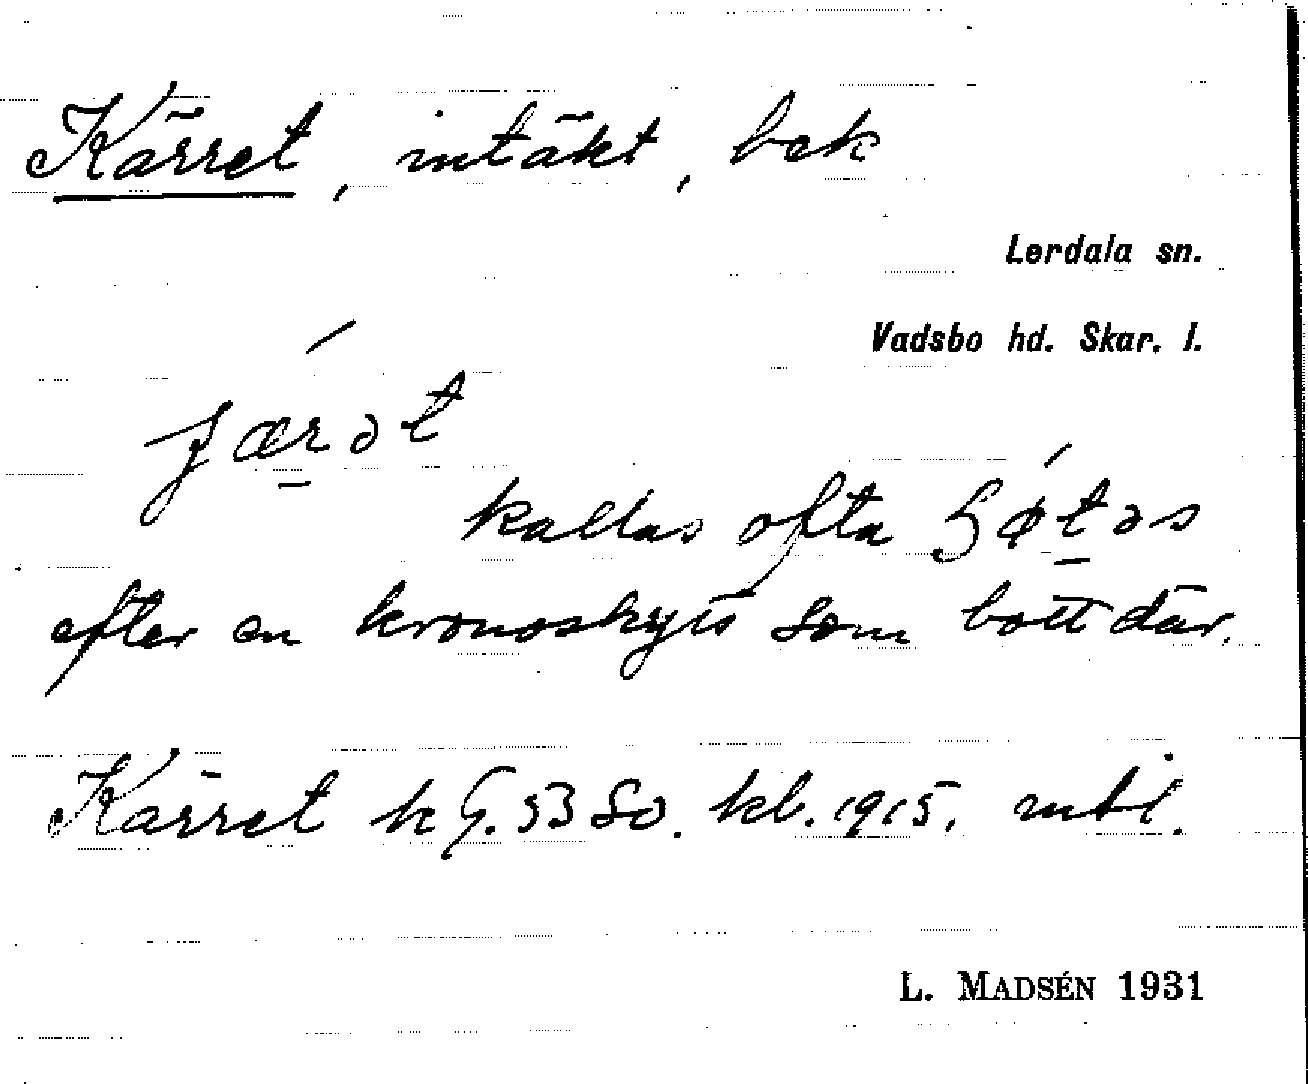 Kärret, intäkt, bek
Lerdala sn.
Vadsbo hd. Skar. l.
kallas ofta
efter en kronoskytt som bott där.
Kärret k G. 53 80. kb. 1915. mtl.
L. MADSÉN 1931